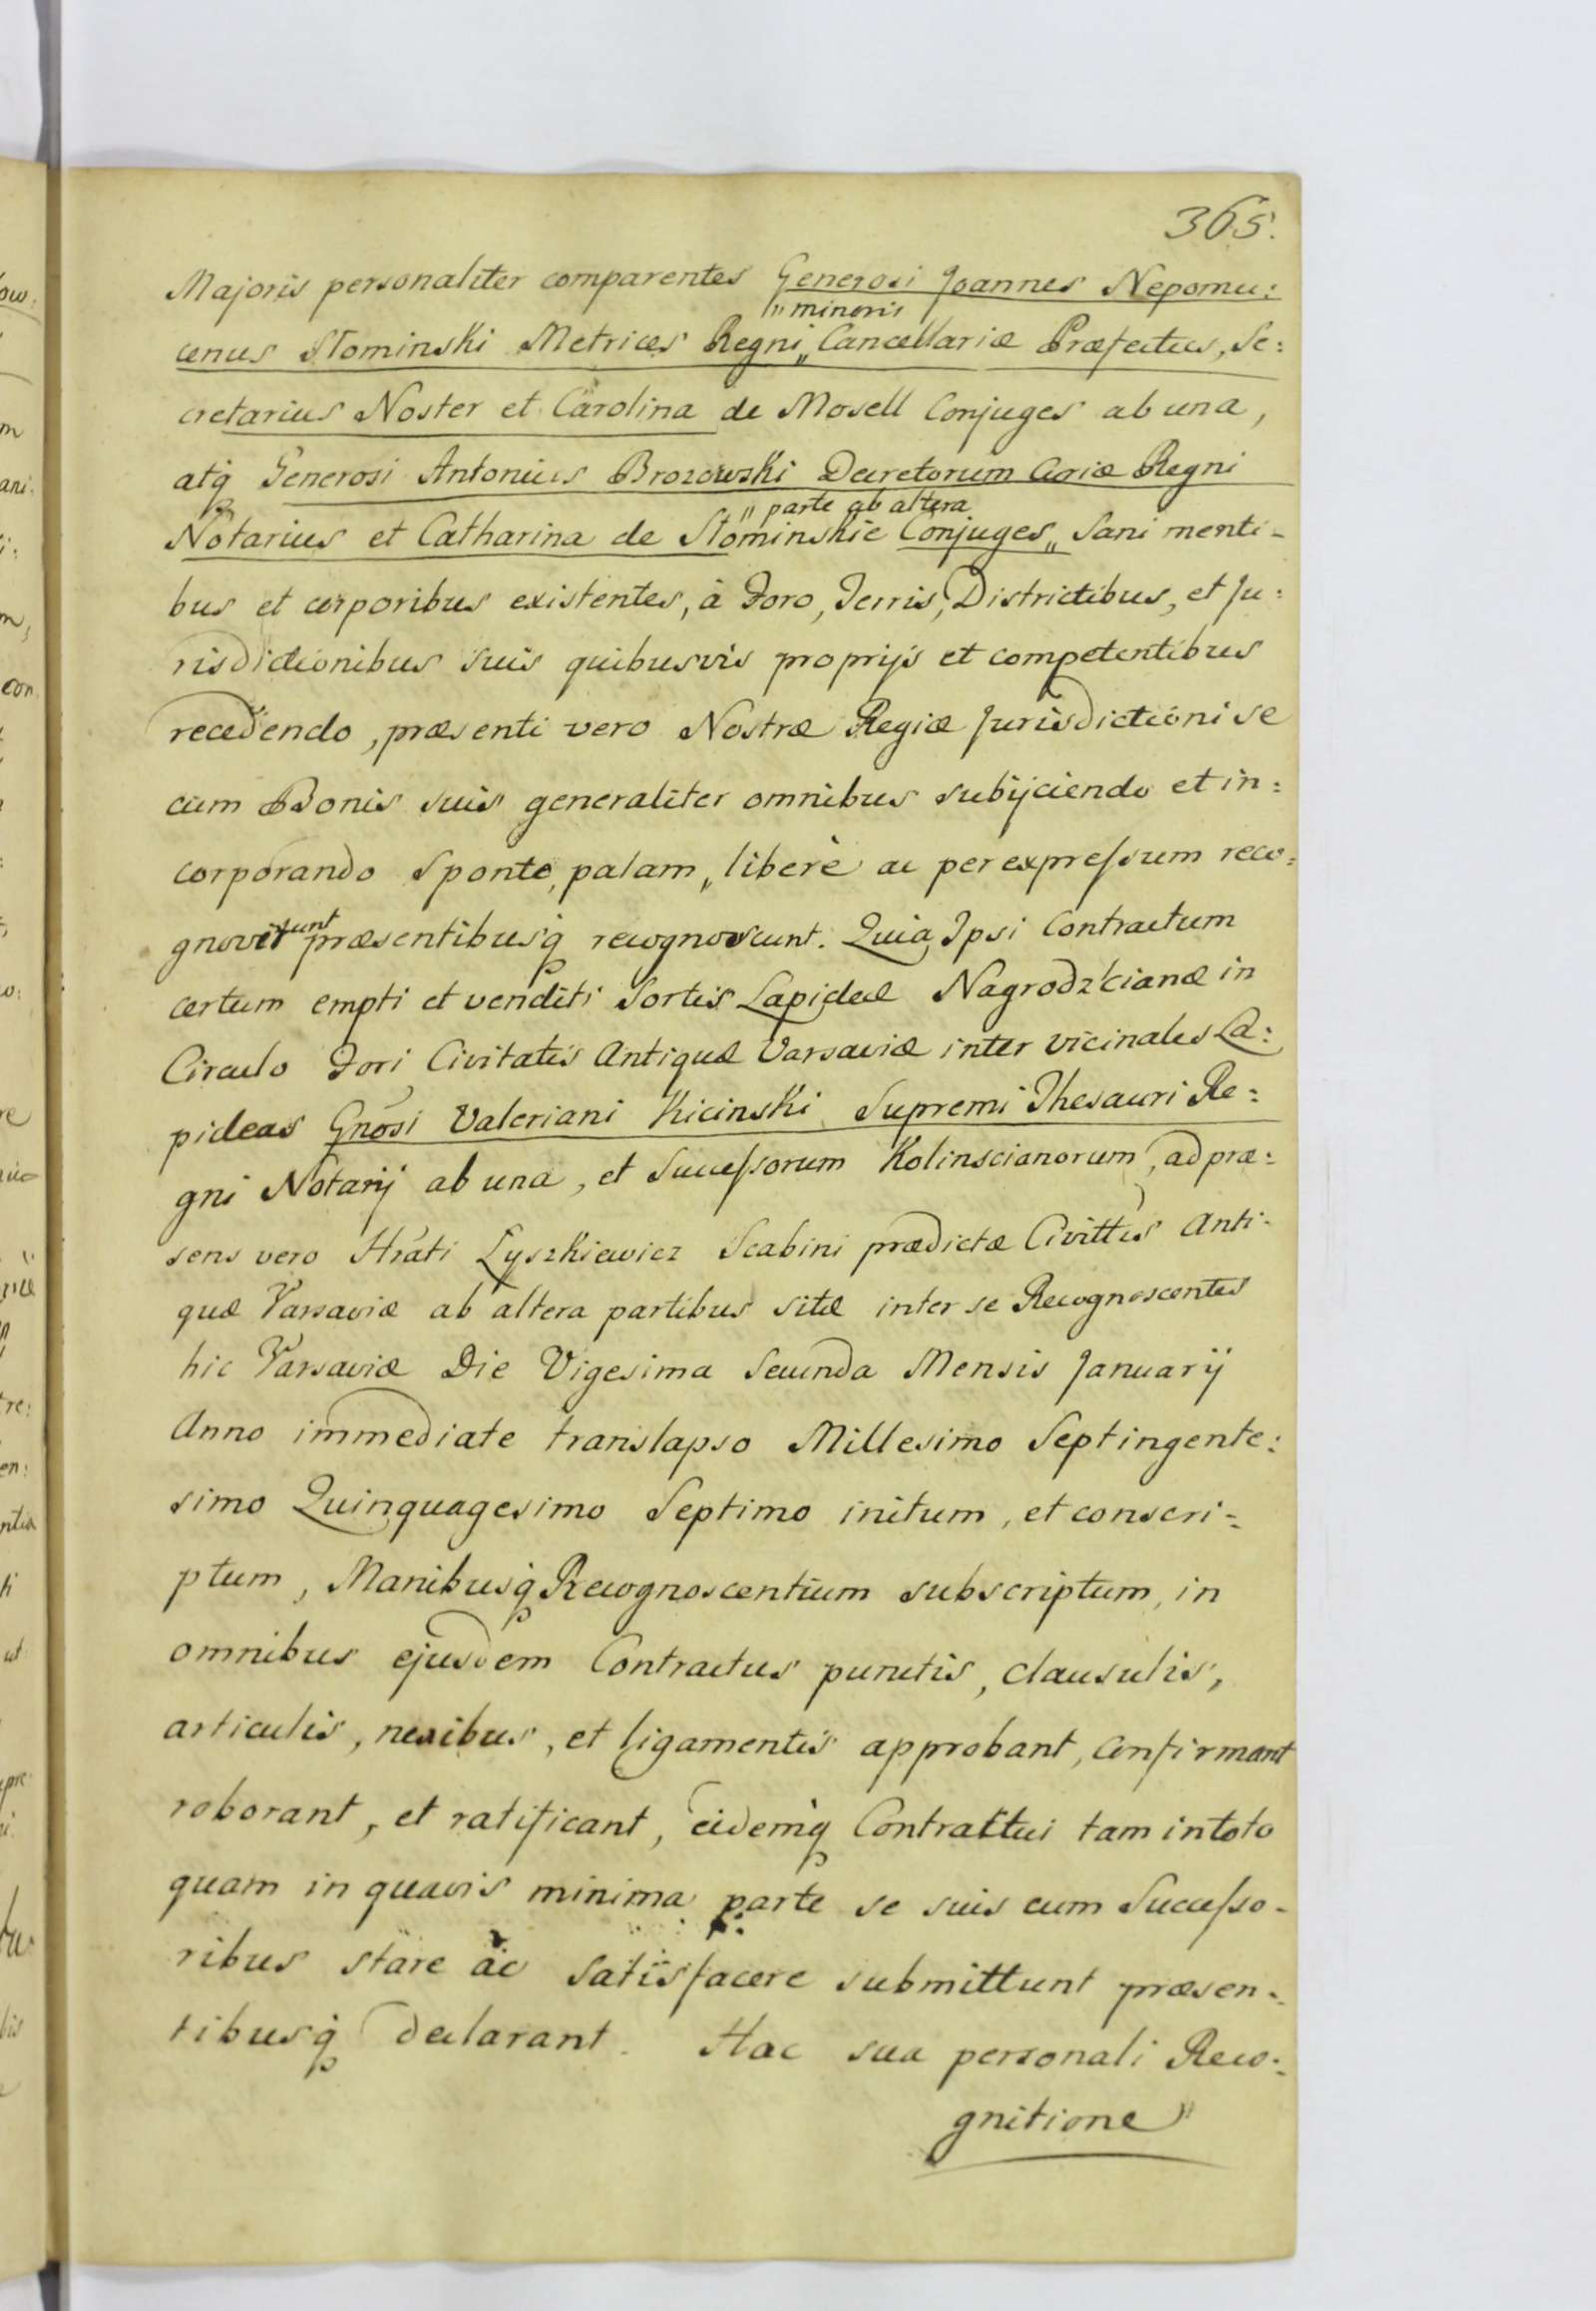 365.
Majoris personaliter comparentes Generosi Joannes Nepomu:
„minoris
cenus Słominski Metrices Regni„ Cancellariæ Præfectus, Se:
cretarius Noster et Carolina de Mosell Conjuges ab una,
atq̃ Generosi Antonius Brozowski Decretorum Cariæ Regni
„parte ab altera
Notarius et Catharina de Słominskie Conjuges„ Sani menti-
bus et corporibus existentes, à Foro, Terris, Districtibus, et Ju:
risdictionibus suis quibusvis proprijs et competentibus
recedendo, præsenti vero Nostræ Regiæ Jurisdictioni se
cum Bonis suis generaliter omnibus subijciendo et in:
corporando Sponte, palam, liberè ac per expressum reco:
gnoverunt præsentibusq̃ recognoscunt. Quia Ipsi Contractum
certum empti et venditi Sortis Lapideæ Nagrodzkcianæ in
Circulo Fori Civitatis Antiquæ Varsaviæ inter vicinales La:
pideas Gnosi Valeriani Kicinski Supremi Thesauri Re:
gni Notarij ab una, et Successorum Kolinscianorum, ad præ:
sens vero Hrati Łyszkiewicz Scabini prædictæ Civittis Anti-
quæ Varsaviæ ab altera partibus sitæ inter se Recognoscentes
hic Varsaviæ Die Vigesima Secunda Mensis Januarij
Anno immediate translapso Millesimo Septingente:
simo Quinquagesimo Septimo initum, et conscri-
ptum, Manibusq̃ Recognoscentium subscriptum, in
omnibus ejusdem Contractus punctis, clausulis,
articulis, nexibus, et ligamentis approbant, confirmant
roborant, et ratificant, eidemq̃ Contractui tam in toto
quam in quavis minima parte se suis cum Successo-
ribus stare ac satisfacere submittunt præsen-
tibusq̃ declarant. Hac sua personali Reco:
gnitione